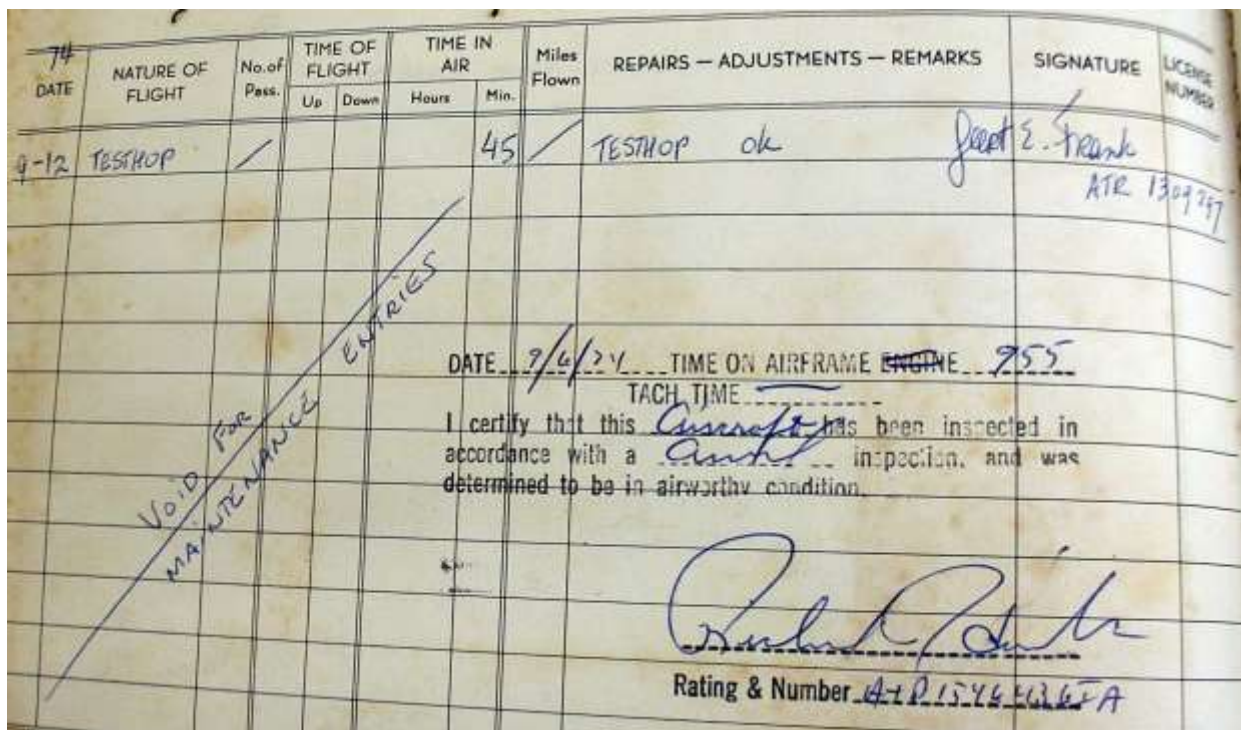 74
DATE NATURE OF FLIGHT No.of Pass. TIME OF FLIGHT Up Down TIME IN AIR Hours Min. Miles Flown REPAIRS — ADJUSTMENTS — REMARKS SIGNATURE LICENSE NUMBER
9-12 TESTHOP / 45 / TESTHOP ok E. Frank
ATR 1309297
VOID FOR
MAINTENANCE ENTRIES
DATE 9/6/74 TIME ON AIRFRAME ENGINE 955
TACH TIME
I certify that this Aircraft has been inspected in
accordance with a inspection, and was
determined to be in airworthy condition.
Rating & Number